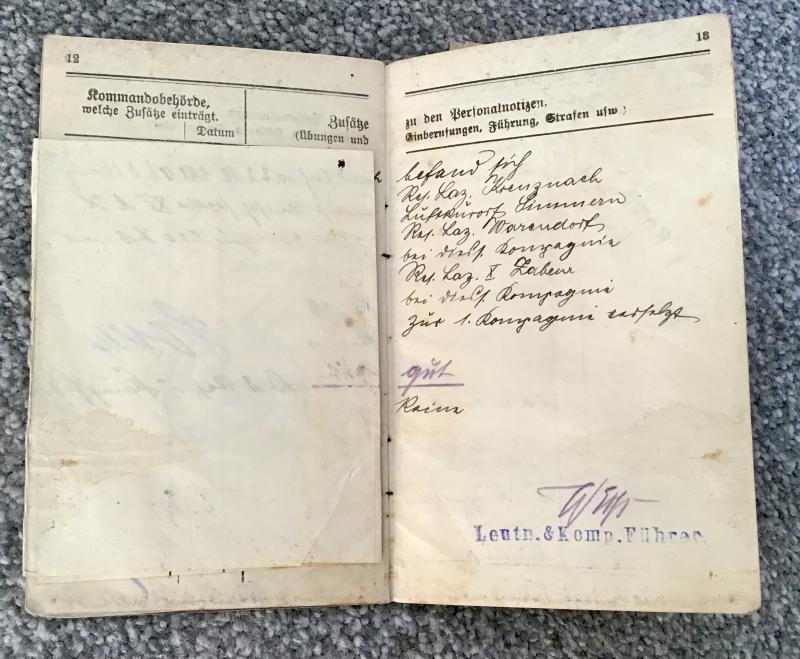 12
Kommandobehörde,
welche Zusätze einträgt.
Datum
Zusätze
(Übungen und
18
zu den Personalnotizen.
Einberufungen, Führung, Strafen usw.)
befand sich
Res. Laz. Kreuznach
Luftkurort Simmern
Res. Laz. Warendorf
bei diess. Kompagnie
Res. Laz. I Zabern
bei diess. Kompagnie
zur 1. Kompagnie versetzt
gut
Keine
Leutn. & Komp. Führer.